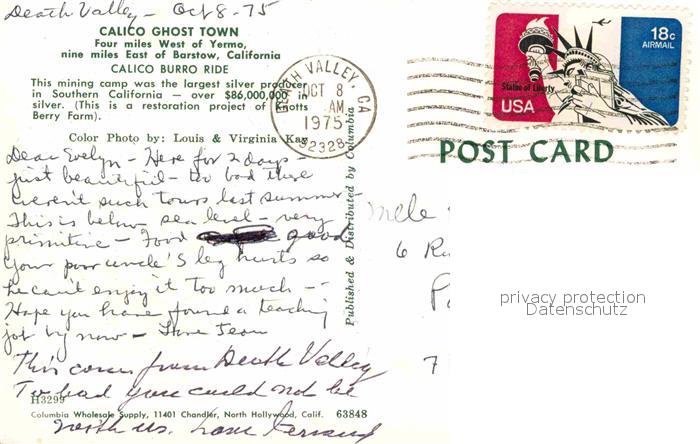 Death Valley - Oct 8-75
CALICO GHOST TOWN
Four miles West of Yermo,
nine miles East of Barstow, California
CALICO BURRO RIDE
This mining camp was the largest silver producer
in Southern California — over $86,000,000 in
silver. (This is a restoration project of Knotts
Berry Farm).
Color Photo by: Louis & Virginia Kay
Dear Evelyn - Here for 2 days -
just beautiful - too bad there
weren't such tours last summer
This is below sea level - very
primitive - Food good
Your poor uncle's leg hurts so
he can't enjoy it too much -
Hope you have found a teaching
job by now - Love Jean
This comes from Death Valley
Too bad you could not be
with us. Love
H3299
Columbia Wholesale Supply, 11401 Chandler, North Hollywood, Calif. 63848
Published & Distributed by Columbia
DEATH VALLEY, CA
OCT 8
AM
1975
92328
18c
AIRMAIL
Statue of Liberty
USA
POST CARD
Mele
6 Ru
P
7
privacy protection
Datenschutz